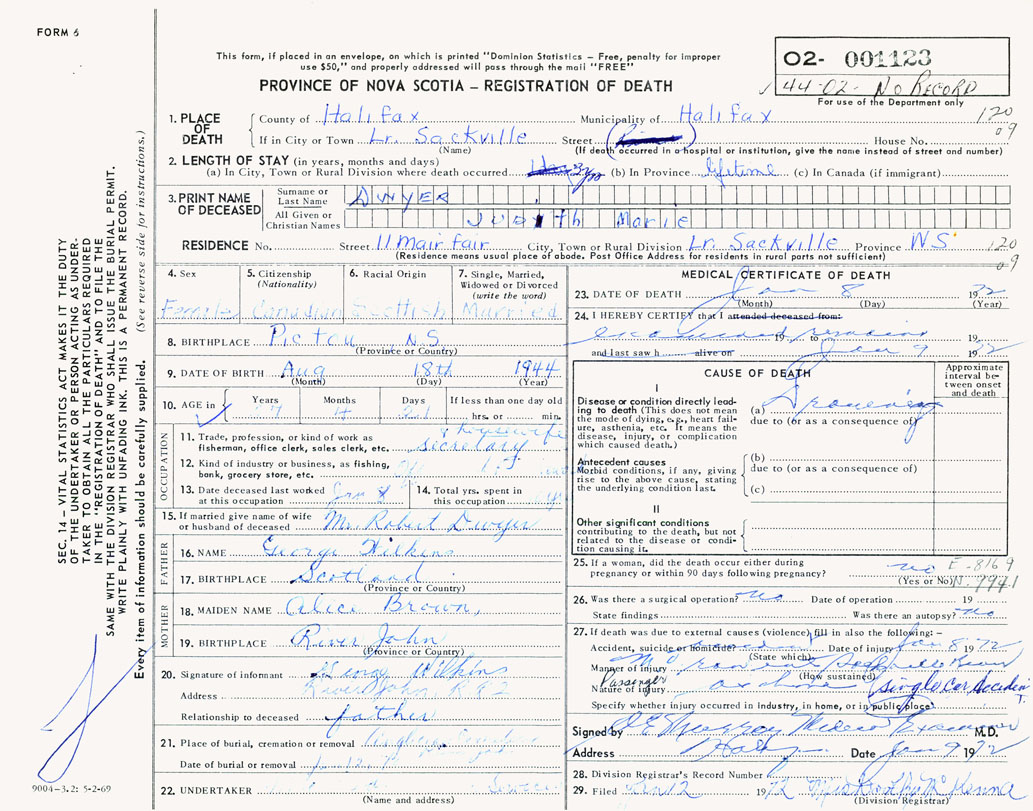 FORM 6
This form, if placed in an envelope, on which is printed "Dominion Statistics – Free, penalty for improper
use $50," and properly addressed will pass through the mail "FREE"
PROVINCE OF NOVA SCOTIA – REGISTRATION OF DEATH
02- 001123
44-02- No RECORD
For use of the Department only
1. PLACE OF DEATH
County of Halifax Municipality of Halifax 120
09
If in City or Town Lr. Sackville Street House No.
(Name) (If death occurred in a hospital or institution, give the name instead of street and number)
2. LENGTH OF STAY (in years, months and days)
(a) In City, Town or Rural Division where death occurred (b) In Province lifetime (c) In Canada (if immigrant)
3. PRINT NAME OF DECEASED
Surname or Last Name DWYER
All Given or Christian Names Judith Marie
RESIDENCE No. Street 11 Mair fair City, Town or Rural Division Lr. Sackville Province NS 120
09
(Residence means usual place of abode. Post Office Address for residents in rural parts not sufficient)
4. Sex Female
5. Citizenship (Nationality) Canadian
6. Racial Origin Scottish
7. Single, Married, Widowed or Divorced (write the word) Married
8. BIRTHPLACE Pictou N.S.
(Province or Country)
9. DATE OF BIRTH Aug 18th 1944
(Month) (Day) (Year)
10. AGE in Years 27 Months 4 Days 21 If less than one day old
hrs. or min.
OCCUPATION
11. Trade, profession, or kind of work as fisherman, office clerk, sales clerk, etc. secretary & housewife
12. Kind of industry or business, as fishing, bank, grocery store, etc.
13. Date deceased last worked at this occupation Jan 8
14. Total yrs. spent in this occupation
15. If married give name of wife or husband of deceased Mr. Robert Dwyer
FATHER
16. NAME George Wilkins
17. BIRTHPLACE Scotland
(Province or Country)
MOTHER
18. MAIDEN NAME Alice Brown,
19. BIRTHPLACE River John
(Province or Country)
20. Signature of informant George Wilkins
Address River John R R 2
Relationship to deceased father
21. Place of burial, cremation or removal
Date of burial or removal
22. UNDERTAKER
(Name and address)
9004–3.2: 5-2-69
MEDICAL CERTIFICATE OF DEATH
23. DATE OF DEATH Jan 8 1972
(Month) (Day) (Year)
24. I HEREBY CERTIFY that I attended deceased from:
examined remains 19 to Jan 9 1972
and last saw h alive on 19
CAUSE OF DEATH
Approximate interval between onset and death
I
Disease or condition directly leading to death (This does not mean the mode of dying, e.g., heart failure, asthenia, etc. It means the disease, injury, or complication which caused death.)
(a) Drowning
due to (or as a consequence of)
Antecedent causes
Morbid conditions, if any, giving rise to the above cause, stating the underlying condition last.
(b)
due to (or as a consequence of)
(c)
II
Other significant conditions
contributing to the death, but not related to the disease or condition causing it.
25. If a woman, did the death occur either during
pregnancy or within 90 days following pregnancy? no
(Yes or No)
E-8169
N.9941
26. Was there a surgical operation? no Date of operation 19
State findings Was there an autopsy? no
27. If death was due to external causes (violence) fill in also the following: –
Accident, suicide or homicide? Date of injury Jan 8 1972
(State which)
Manner of injury Sackville River
(How sustained)
Passenger
Nature of injury (single car accident
Specify whether injury occurred in industry, in home, or in public place
Signed by Murray Medical Examiner M.D.
Address Date Jan 9 1972
28. Division Registrar's Record Number
29. Filed Jan 12 1972 McKenna
(Division Registrar)
SEC. 14 – VITAL STATISTICS ACT MAKES IT THE DUTY
OF THE UNDERTAKER OR PERSON ACTING AS UNDER-
TAKER TO OBTAIN ALL THE PARTICULARS REQUIRED
IN THE "REGISTRATION OF DEATH" AND TO FILE THE
SAME WITH THE DIVISION REGISTRAR WHO SHALL ISSUE THE BURIAL PERMIT.
WRITE PLAINLY WITH UNFADING INK. THIS IS A PERMANENT RECORD.
Every item of information should be carefully supplied. (See reverse side for instructions.)